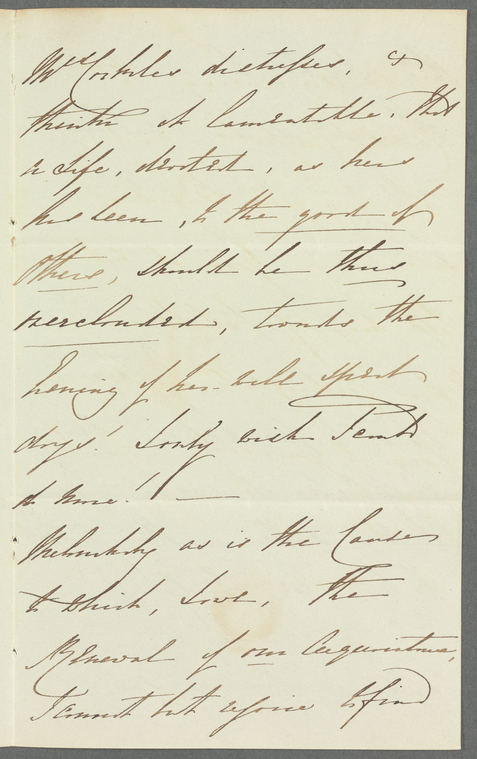 Mrs Corkles distresses, &
thinks it lamentable, that
a Life, devoted, as hers
has been, to the good of
Others, should be thus
overclouded, towards the
Evening of her well spent
days! I only wish I could
do more! —
Melancholy as is the Cause
to which, I owe, the
Renewal of our Acquaintance,
I cannot but rejoice to find